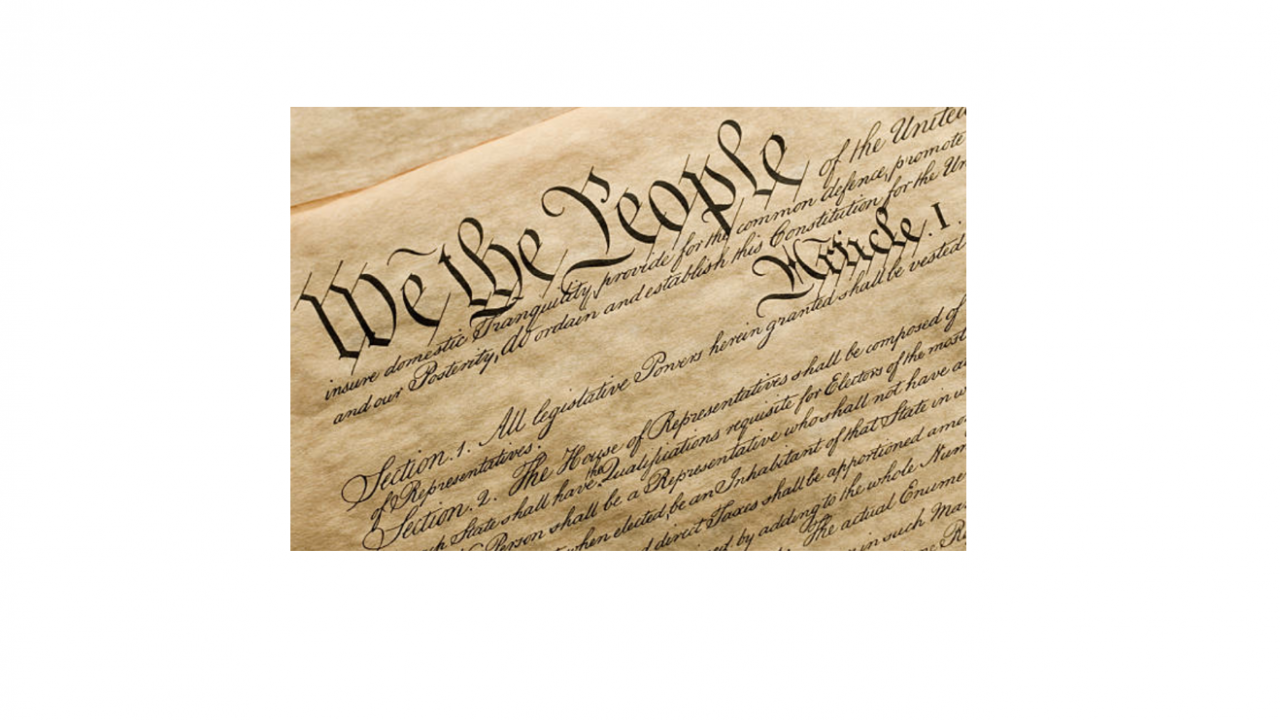 We the People of the United
insure domestic Tranquility, provide for the common defence, promote
and our Posterity, do ordain and establish this Constitution for the Un
Article. I.
Section. 1. All legislative Powers herein granted shall be vested
of Representatives.
Section. 2. The House of Representatives shall be composed of
State shall have the Qualifications requisite for Electors of the most
Person shall be a Representative who shall not have
when elected, be an Inhabitant of that State in
direct Taxes shall be apportioned amo
by adding to the whole Num
The actual Enume
in such Ma